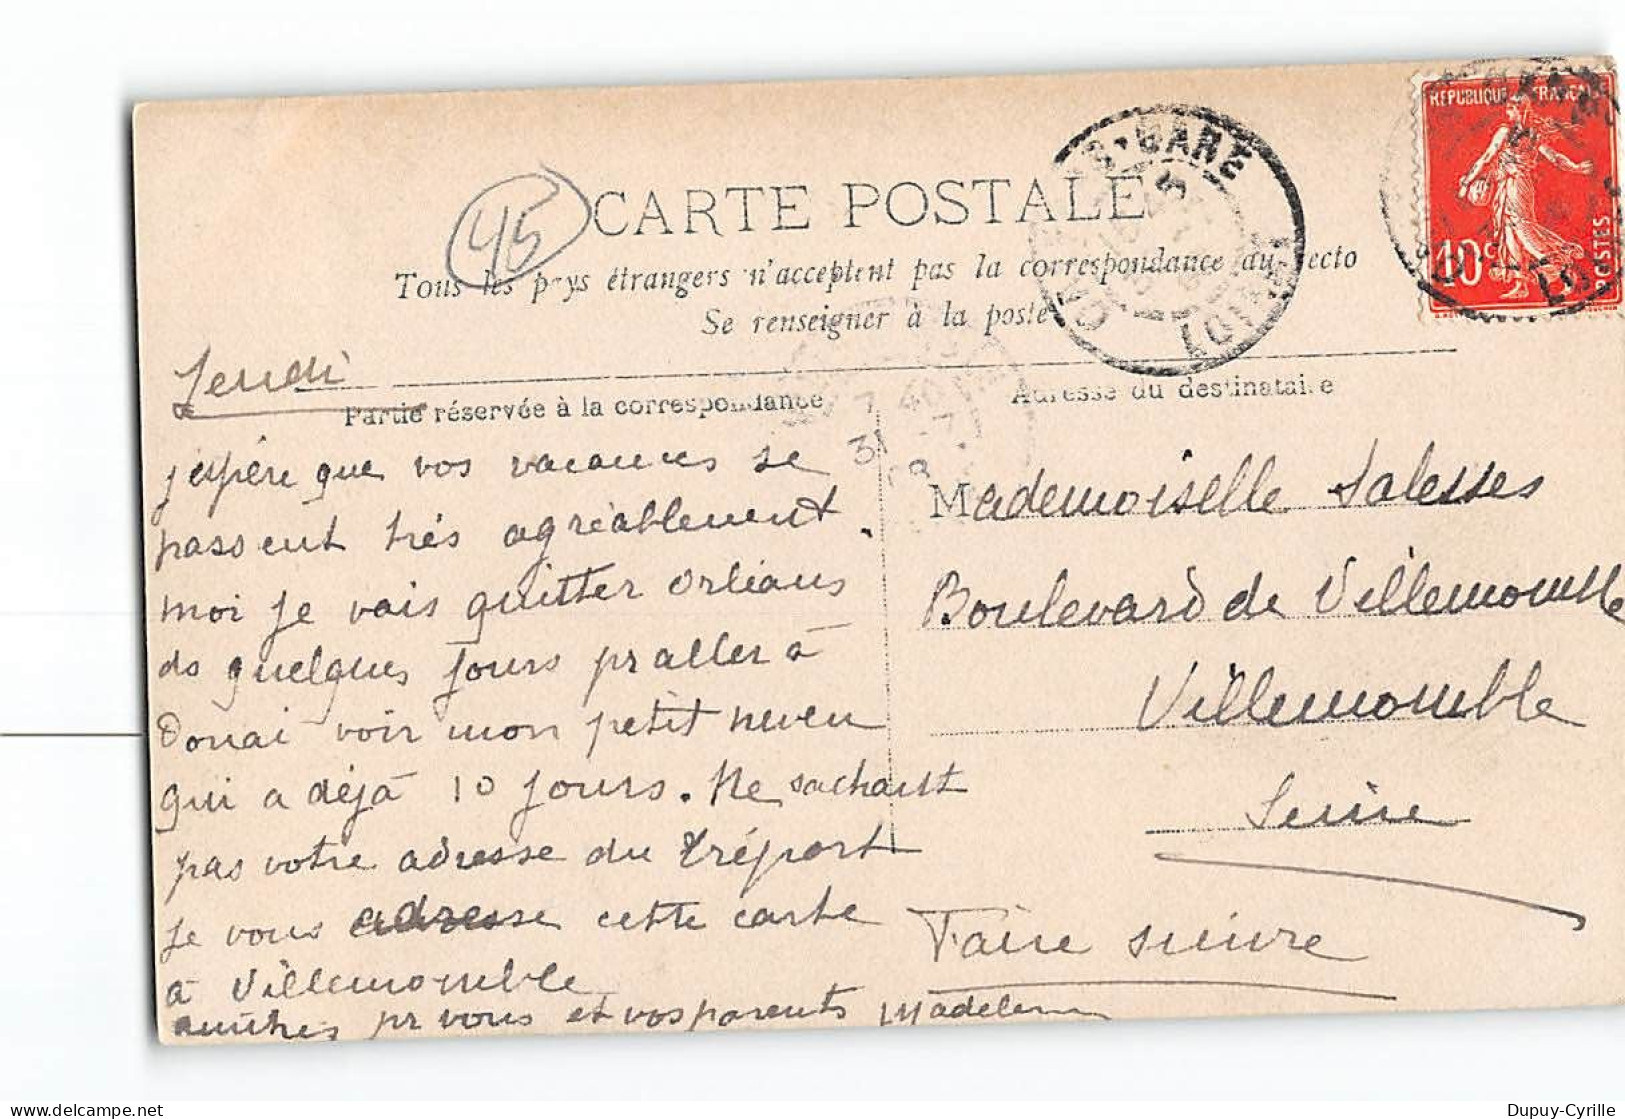 REPUBLIQUE FRANÇAISE
10c POSTES
45
CARTE POSTALE
GARE
LOIRET
Tous les pays étrangers n'acceptent pas la correspondance au recto
Se renseigner à la poste
Jeudi
Partie réservée à la correspondance
7 40
31 -7
08
j'espère que vos vacances se
passent très agréablement.
moi je vais quitter Orléans
ds quelques jours pr aller à
Douai voir mon petit neveu
qui a déjà 10 jours. Ne sachant
pas votre adresse du Tréport
je vous adresse cette carte
à Villemomble
amitiés pr vous et vos parents Madeleine
Adresse du destinataire
Mademoiselle Salesses
Boulevard de Villemomble
Villemomble
Seine
Faire suivre
delcampe.net
Dupuy-Cyrille